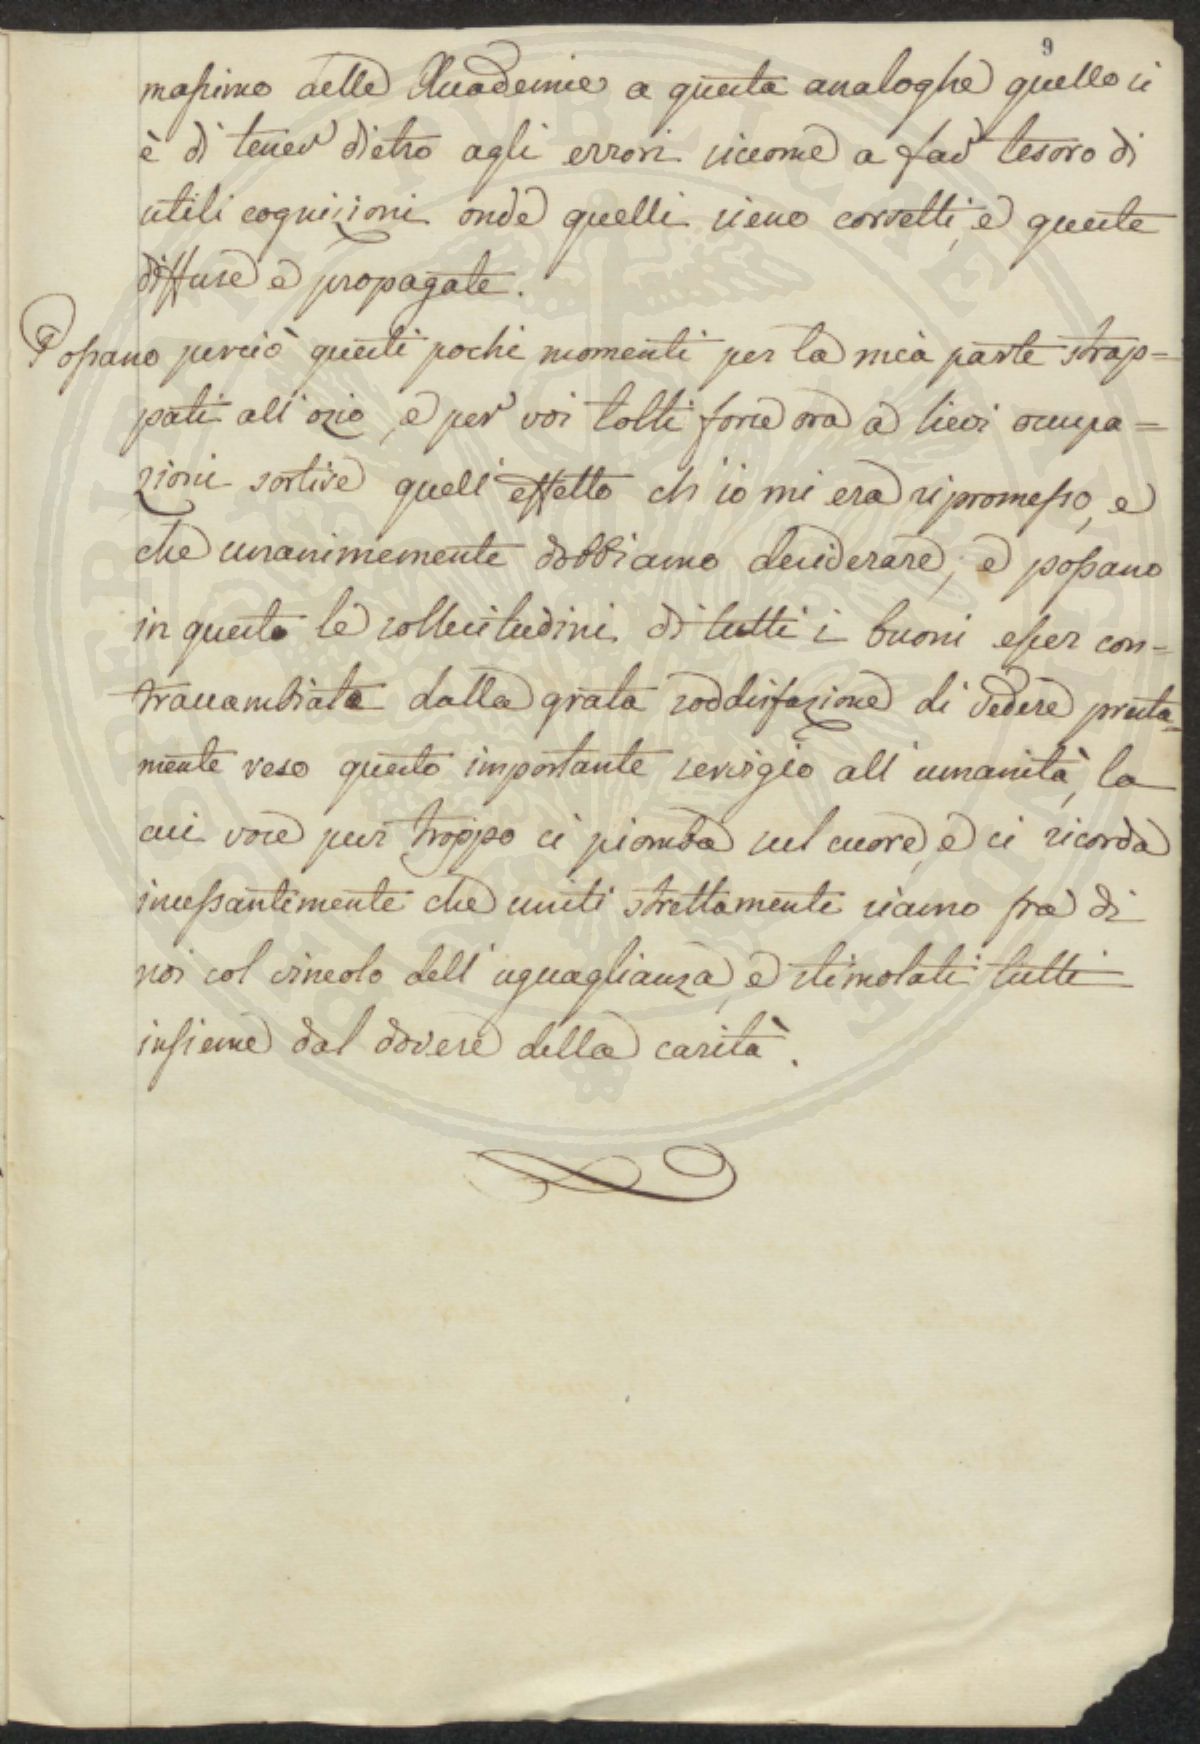 9
massimo delle Accademie a questa analoghe quello si
è di tener dietro agli errori siccome a far tesoro di
utili cognizioni onde quelli sieno corretti, e queste
diffuse e propagate.
Possano perciò questi pochi momenti per la mia parte strap=
pati all'ozio, e per voi tolti forse ora a lievi occupa=
zioni sortire quell'effetto ch'io mi era ripromesso, e
che unanimemente dobbiamo desiderare; e possano
in questo le sollecitudini di tutti i buoni esser con=
traccambiate dalla grata soddisfazione di vedere presta=
mente reso questo importante servigio all'umanità, la
cui voce pur troppo ci piomba sul cuore, e ci ricorda
incessantemente che uniti strettamente siamo fra di
noi col vincolo dell'uguaglianza, e stimolati tutti
insieme dal dovere della carità.